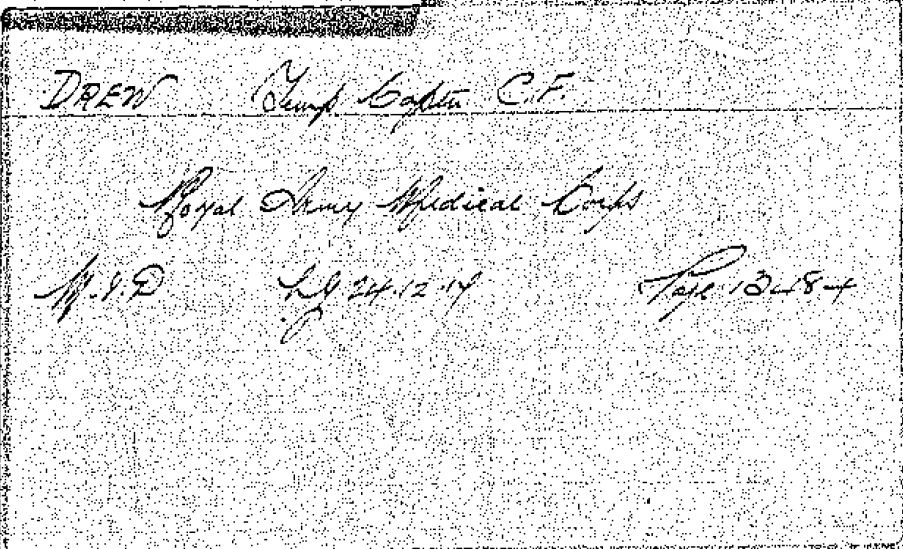 DREW Temp Captn C.F.
Royal Army Medical Corps
M.I.D L.G. 24.12.17 Page 13484